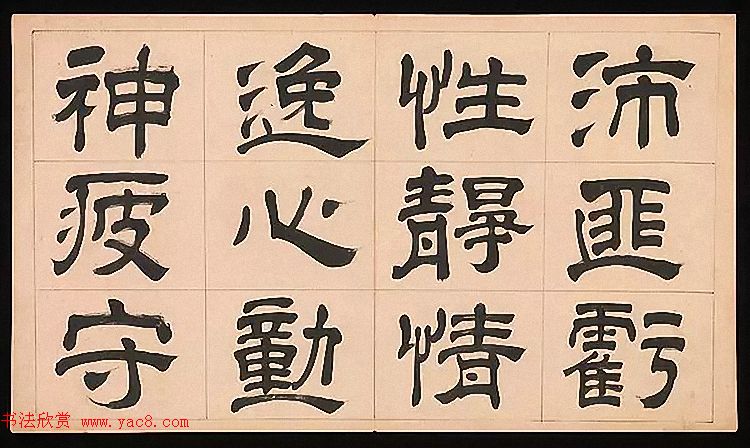 沛匪虧
性靜情
逸心動
神疲守
书法欣赏 www.yac8.com